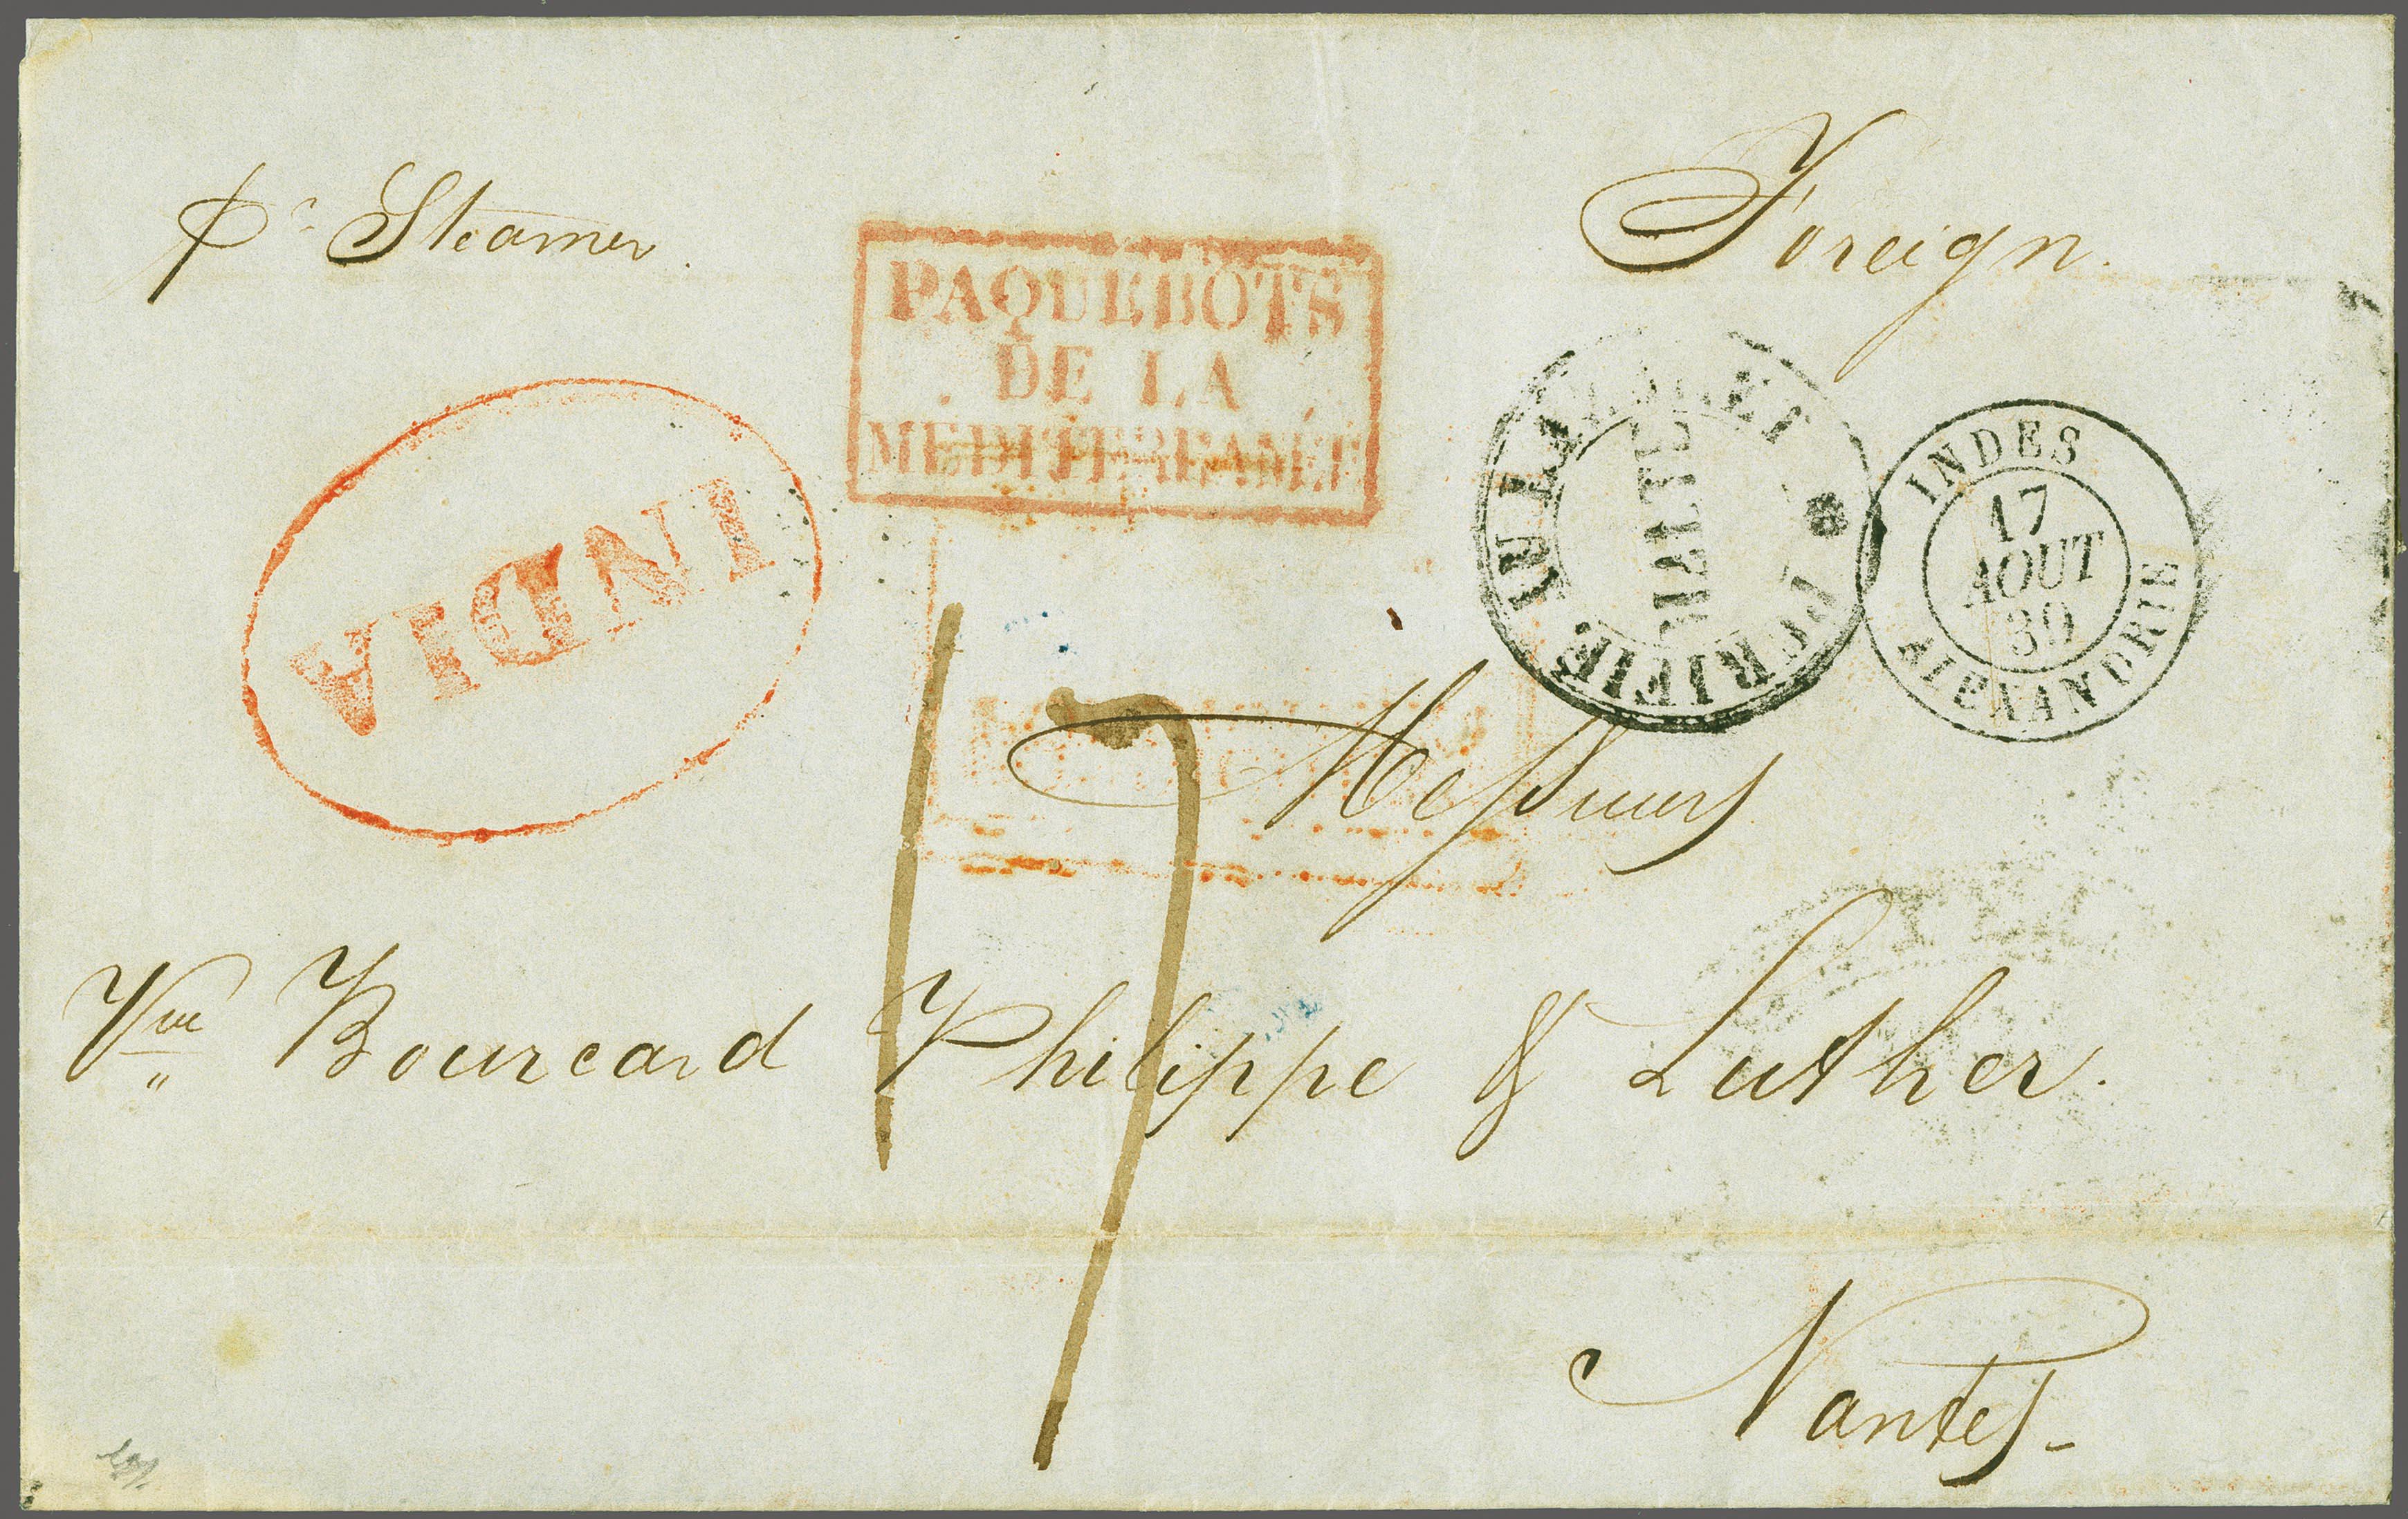 pr Steamer.
Foreign.
PAQUEBOTS
DE LA
MÉDITERRANÉE
INDIA
PURIFIÉ AU LAZARET
MALTE
INDES
17
AOUT
39
ALEXANDRIE
Messieurs
Vve Bourcard Philippe & Luther.
17
Nantes